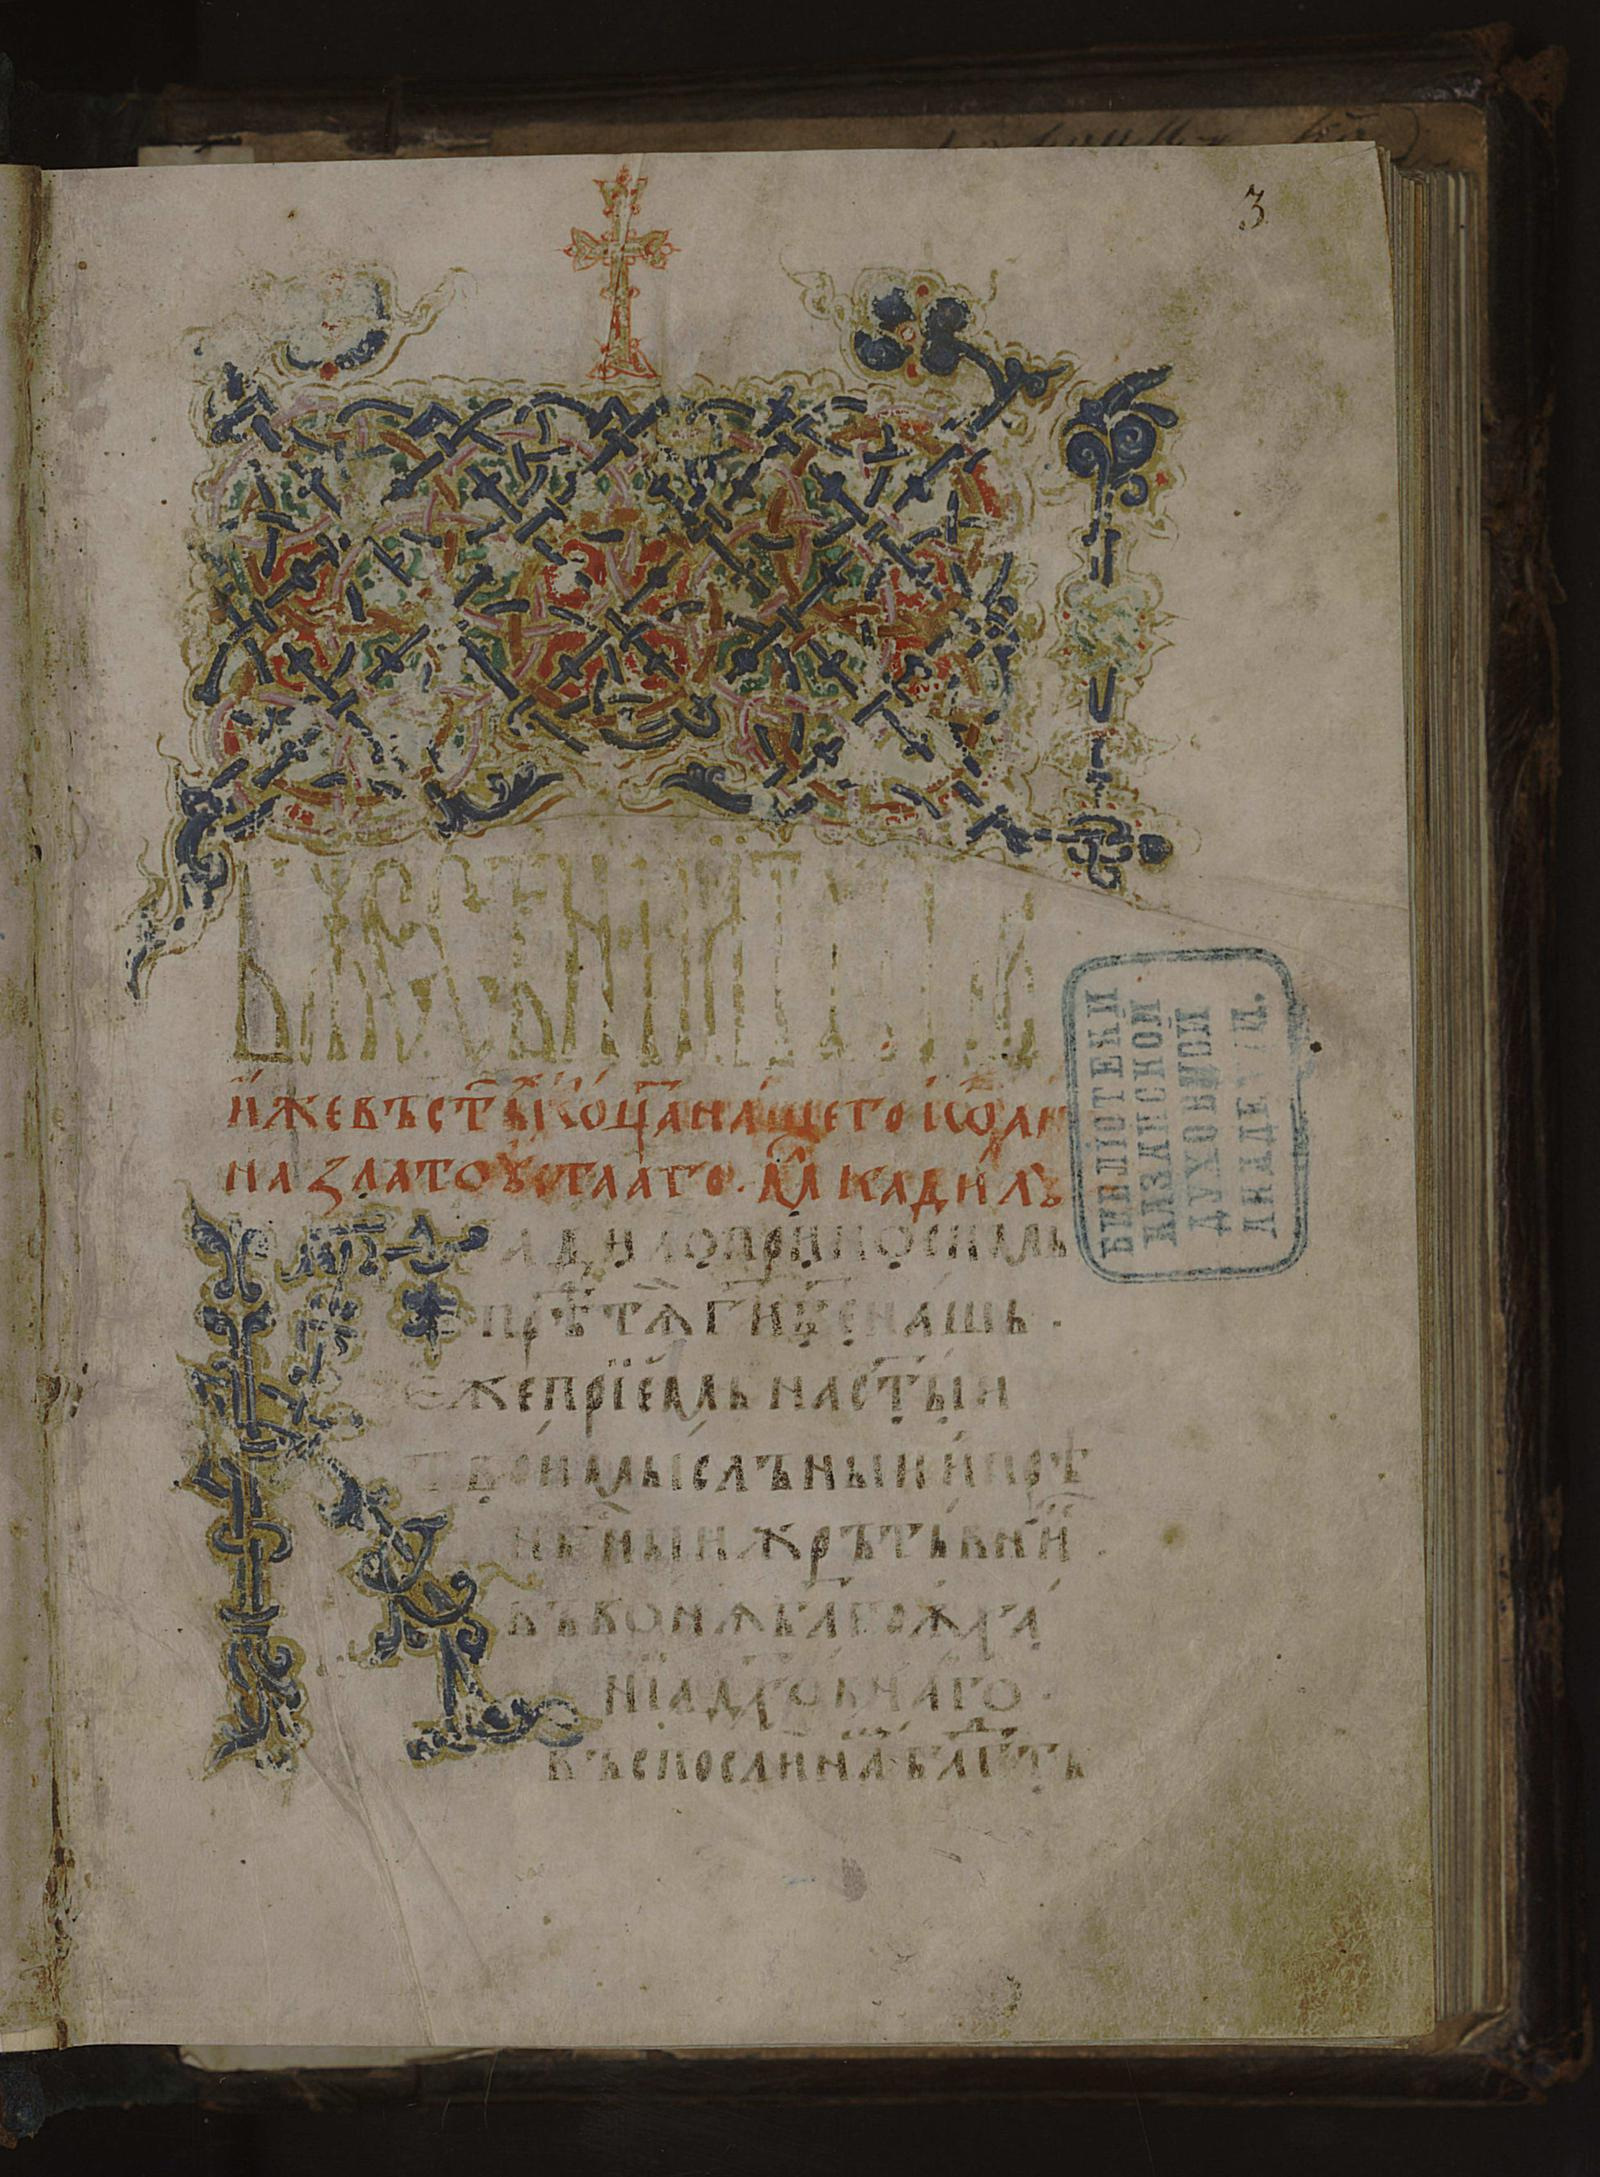 3
и҆жевъст҃ы́хо҆ц҃анашегоі҆ѡ҆ан
назлатоꙋ́стааго. мл҃кадилꙋ
Кадилоприносимь
прѣ́дтѧг҃иб҃енашь .
є҆жепрїе́мль наст҃ы́и
твои́мы́слъныи и҆прѣ
нб҃ныи жрътъвни́
въвонѧбл҃гоꙋха́
нїадх҃овнаго .
въспослинамбл҃гⷣть
БИБЛІОТЕКИ
КАЗАНСКОЙ
ДУХОВНОЙ
АКАДЕМІИ.